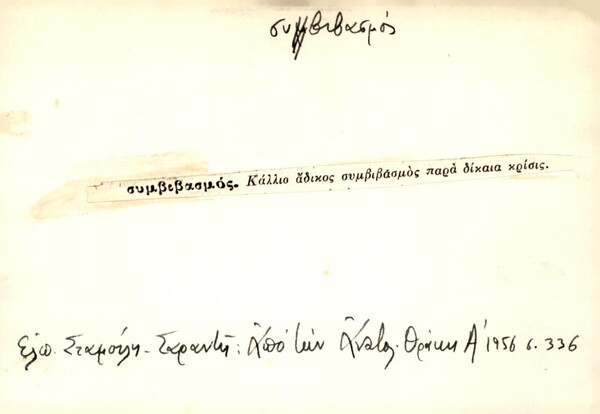 συμβιβασμός
συμβιβασμός. Κάλλιο ἄδικος συμβιβασμὸς παρὰ δίκαια κρίσις.
Ἐλπ. Σταμούλη - Σαραντῆ: Ἀπὸ τὴν Ἀνατολ. Θράκη Α' 1956 σ. 336